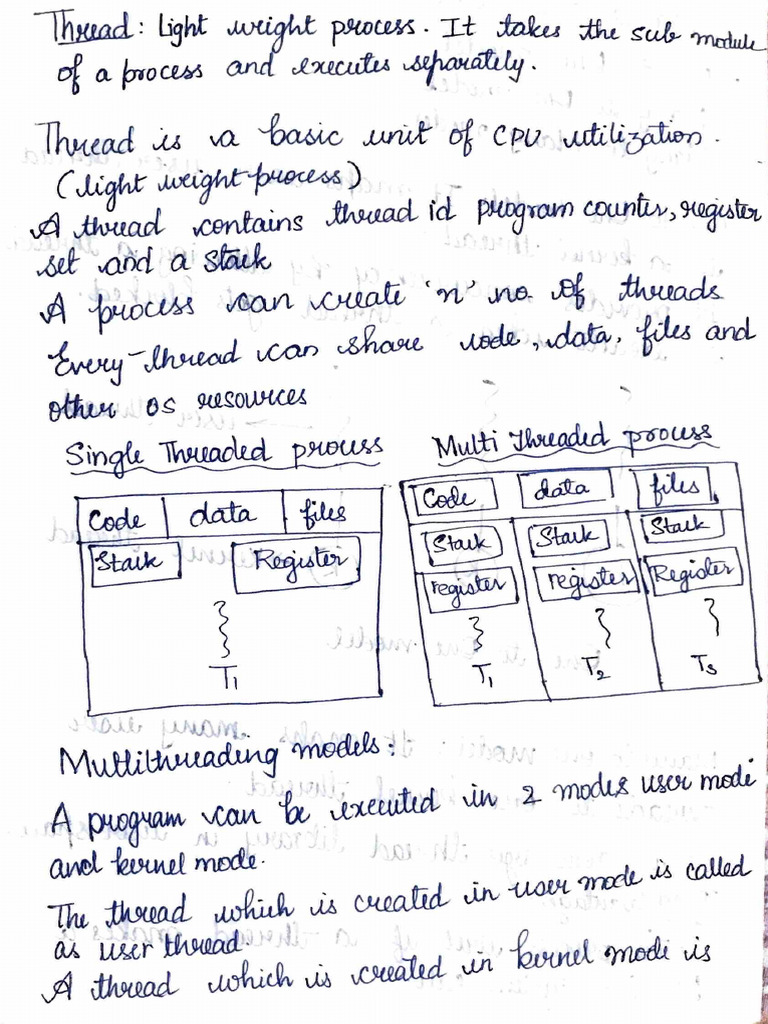 Thread: Light weight process. It takes the sub module
of a process and executes separately.
Thread is a basic unit of CPU utilization.
(light weight process)
A thread contains thread id program counter, register
set and a stack
A process can create 'n' no. of threads
Every thread can share code, data, files and
other os resources
Single Threaded process
Multi Threaded process
Code data files
Stack Register
T1
Code data files
Stack Stack Stack
register register Register
T1 T2 T3
Multithreading models:
A program can be executed in 2 modes user mode
and kernel mode.
The thread which is created in user mode is called
as user thread.
A thread which is created in kernel mode is